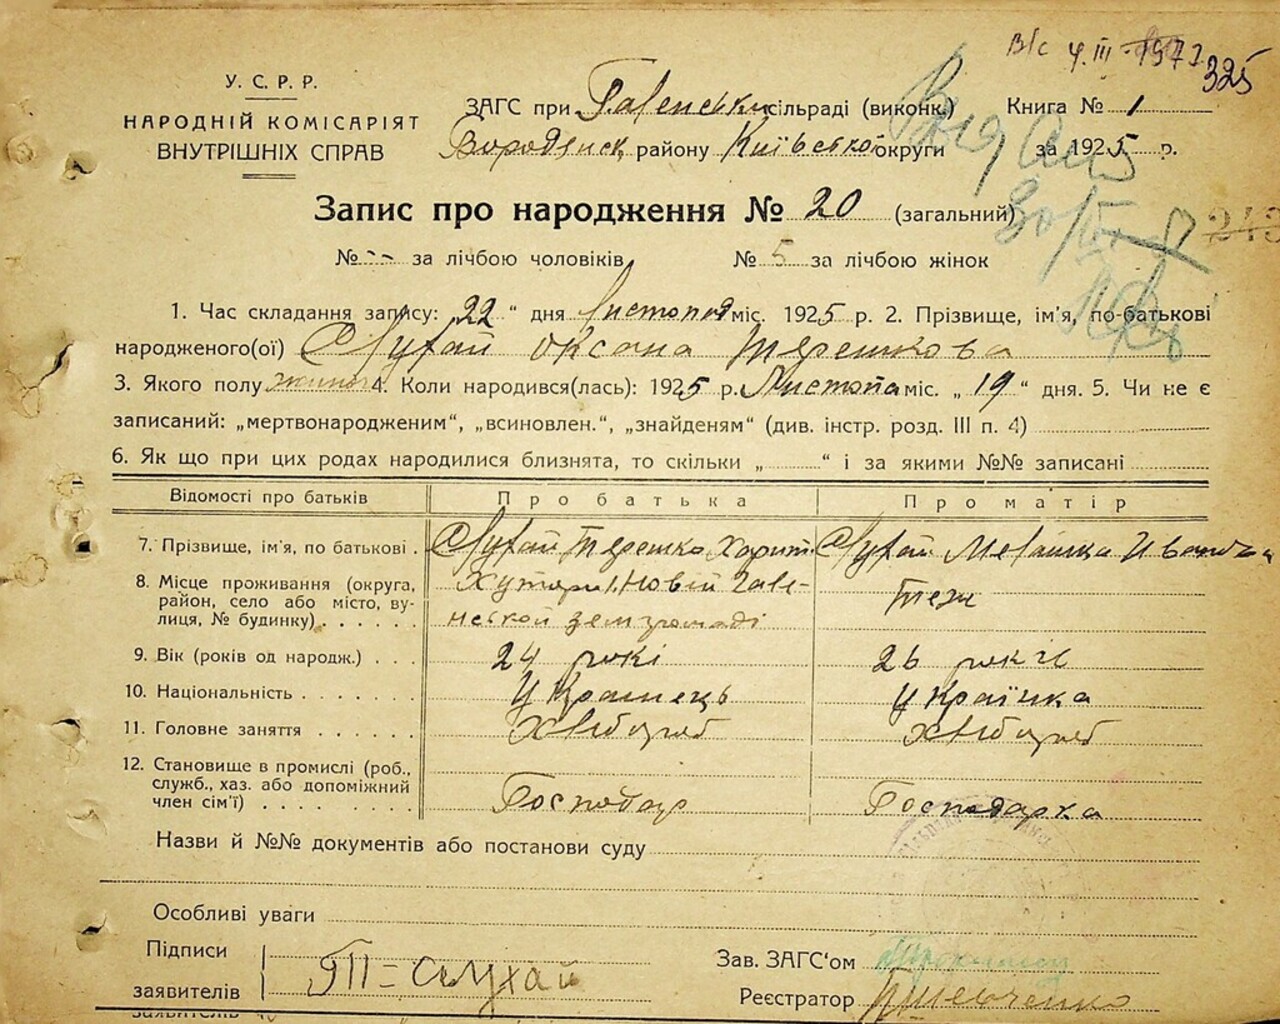 в/с 4.III-1972
325
У. С. Р. Р.
НАРОДНІЙ КОМІСАРІЯТ
ВНУТРІШНІХ СПРАВ
ЗАГС при Гавенськи сільраді (виконк.) Книга № 1
Бородянск району Київської округи за 1925 р.
Запис про народження № 20 (загальний)
243
№ -- за лічбою чоловіків № 5 за лічбою жінок
1. Час складання запису: 22 “ дня Листопад міс. 1925 р. 2. Прізвище, ім'я, по-батькові
народженого(ої) Слухай Оксана Терешкова
3. Якого полу жіноч 4. Коли народився(лась): 1925 р. Листопа міс. „ 19 “ дня. 5. Чи не є
записаний: „мертвонародженим“, „всиновлен.“, „знайденям“ (див. інстр. розд. III п. 4)
6. Як що при цих родах народилися близнята, то скільки „ “ і за якими №№ записані
Відомості про батьків Про батька Про матір
7. Прізвище, ім'я, по батькові . Слухай Терешко Харит. Слухай Мелашка Іванівна
8. Місце проживання (округа, район, село або місто, вулиця, № будинку) . . . . . . Хутори Новій Гавенської земгромаді теж
9. Вік (років од народж.) . . . 24 рокі 26 років
10. Національність . . . . . . . Українець Українка
11. Головне заняття . . . . . . Хлібороб Хлібороб
12. Становище в промислі (роб., служб., хаз. або допоміжний член сім'ї) . . . . . . . . Господар Господарка
Назви й №№ документів або постанови суду
Особливі уваги
Підписи
заявителів
Слухай
Зав. ЗАГС'ом
Реєстратор Шевченко